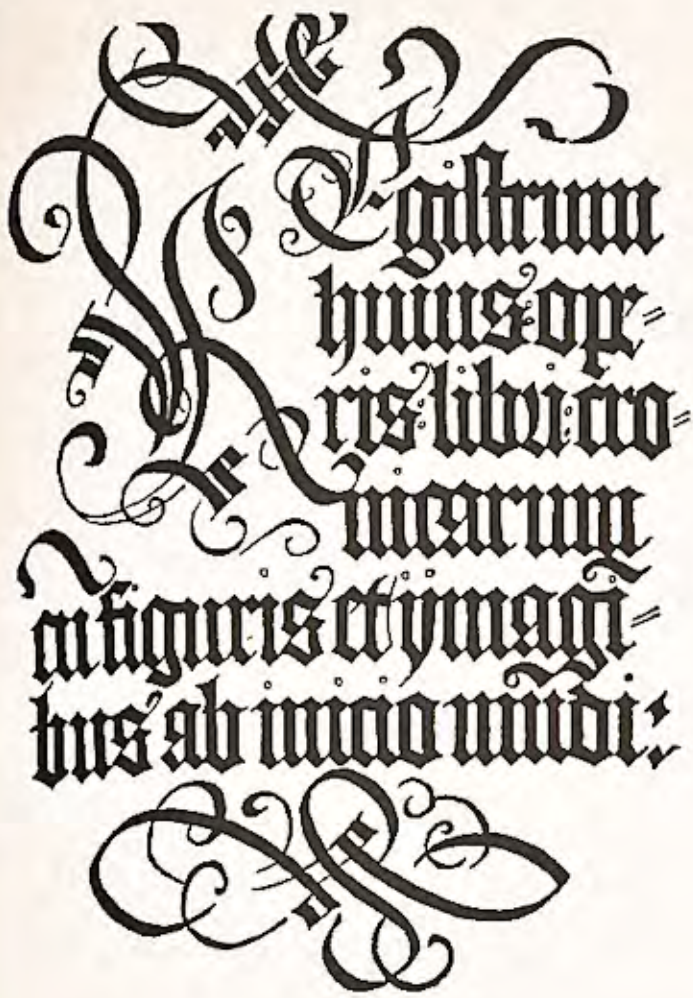 REgistrum
huius ope=
ris libri cro=
nicarum
cū figuris et ÿmagī=
bus ab inicio mūdi: